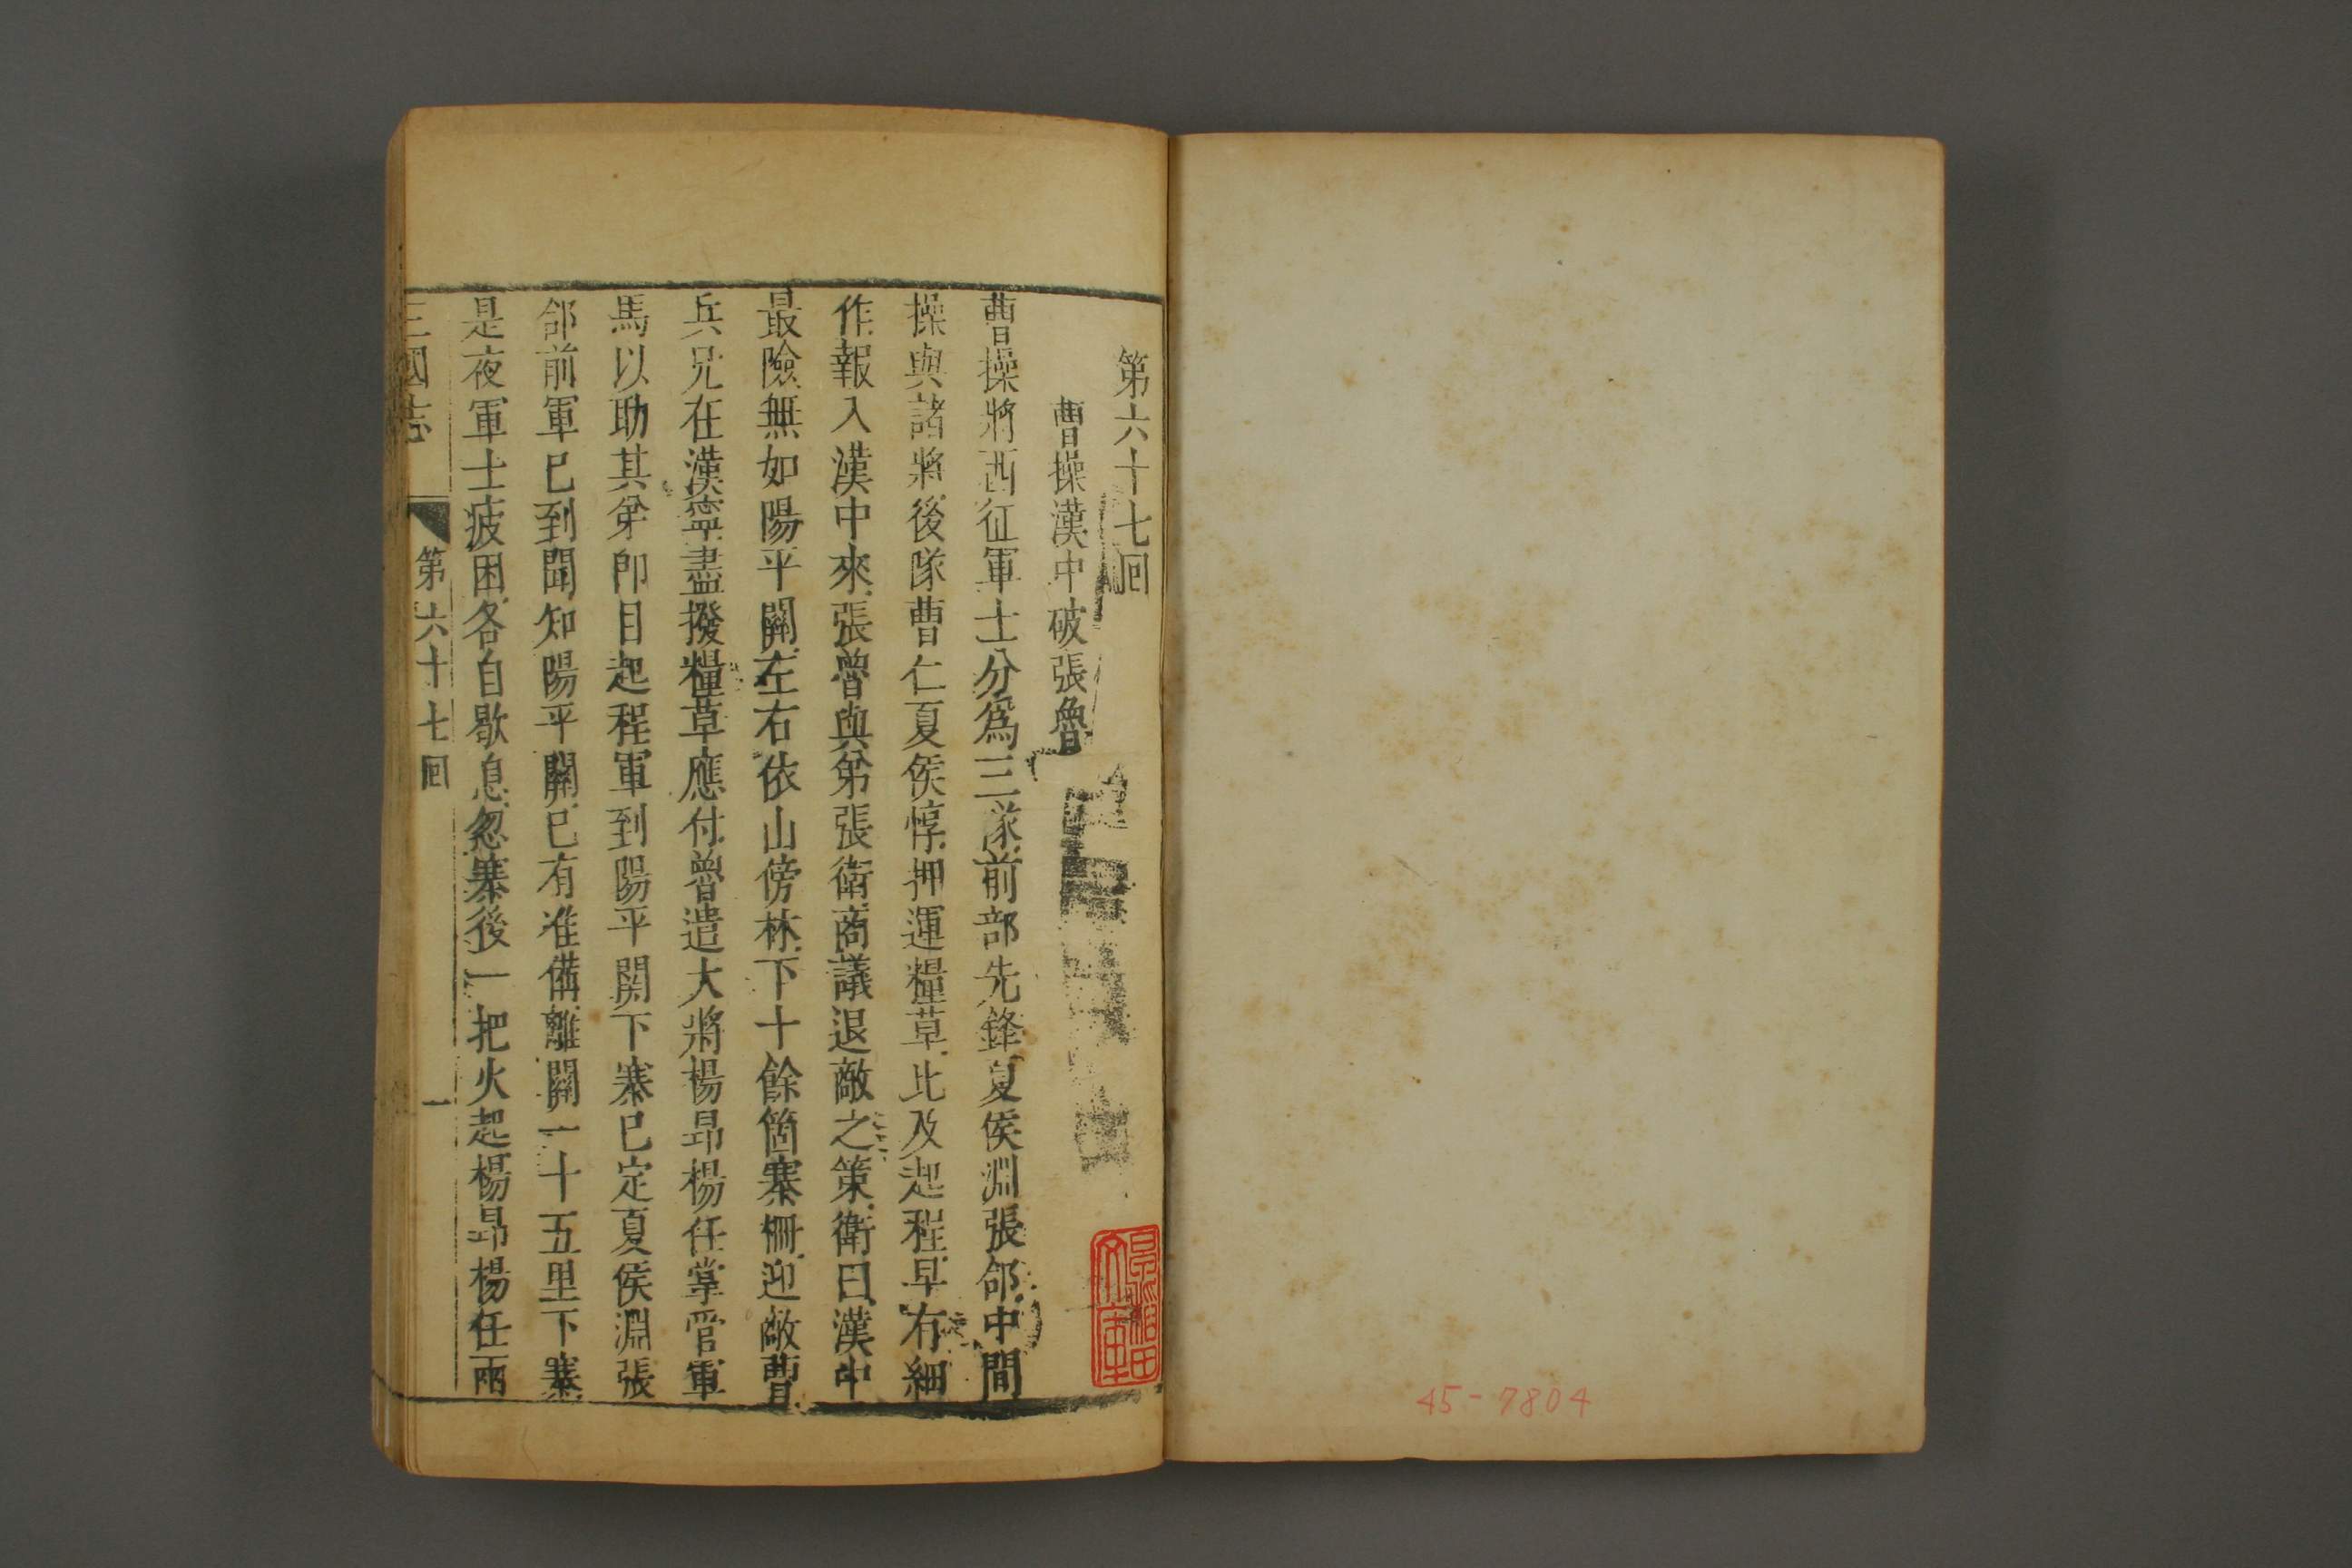 45-7804
第六十七回
曹操漢中破張魯
曹操將西征軍士分爲三隊前部先鋒夏侯淵張郃中間
操與諸將後隊曹仁夏侯惇押運糧草比及起程早有細
作報入漢中來張魯與弟張衛商議退敵之策衛曰漢中
最險無如陽平關左右依山傍林下十餘箇寨柵迎敵曹
兵兄在漢寧盡撥糧草應付魯遣大將楊昂楊任掌管軍
馬以助其弟即日起程軍到陽平関下寨已定夏侯淵張
郃前軍已到聞知陽平關已有准備離關一十五里下寨
是夜軍士疲困各自歇息忽寨後一把火起楊昂楊任兩
三國志
第六十七回
一